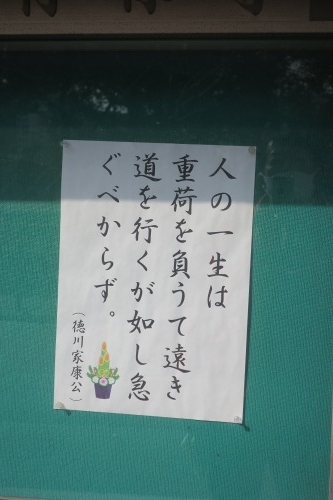 人の一生は
重荷を負うて遠き
道を行くが如し急
ぐべからず。
（徳川家康公）